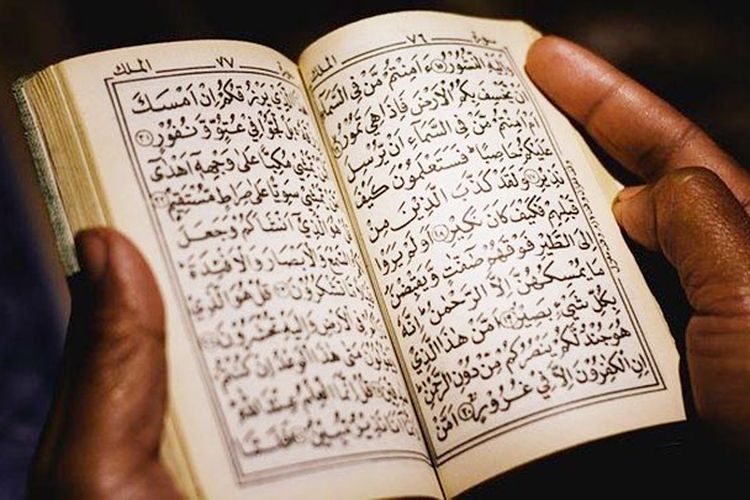 سورة ٧٦ الملك
وَاِلَيْهِ النُّشُوْرُ ﴿١٥﴾ ءَاَمِنْتُمْ مَّنْ فِي السَّمَآءِ
اَنْ يَّخْسِفَ بِكُمُ الْاَرْضَ فَاِذَا هِيَ تَمُوْرُ
اَمْ اَمِنْتُمْ مَّنْ فِي السَّمَآءِ اَنْ يُّرْسِلَ
عَلَيْكُمْ حَاصِبًا فَسَتَعْلَمُوْنَ كَيْفَ
نَذِيْرِ ﴿١٧﴾ وَلَقَدْ كَذَّبَ الَّذِيْنَ مِنْ
قَبْلِهِمْ فَكَيْفَ كَانَ نَكِيْرِ ﴿١٨﴾ اَوَلَمْ يَرَوْا
اِلَى الطَّيْرِ فَوْقَهُمْ صٰٓفّٰتٍ وَّيَقْبِضْنَ
مَا يُمْسِكُهُنَّ اِلَّا الرَّحْمٰنُ اِنَّهٗ
بِكُلِّ شَيْءٍ بَصِيْرٌ ﴿١٩﴾ اَمَّنْ هٰذَا الَّذِيْ
هُوَ جُنْدٌ لَّكُمْ يَنْصُرُكُمْ مِّنْ دُوْنِ الرَّحْمٰنِ
اِنِ الْكٰفِرُوْنَ اِلَّا فِيْ غُرُوْرٍ ﴿٢٠﴾ اَمَّنْ
سورة ٧٧ الملك
الَّذِيْ يَرْزُقُكُمْ اِنْ اَمْسَكَ
بَلْ لَّجُّوْا فِيْ عُتُوٍّ وَّنُفُوْرٍ ﴿٢١﴾
مُكِبًّا عَلٰى وَجْهِهٖٓ اَهْدٰٓى
سَوِيًّا عَلٰى صِرَاطٍ مُّسْتَقِيْمٍ ﴿٢٢﴾
هُوَ الَّذِيْٓ اَنْشَاَكُمْ وَجَعَلَ
السَّمْعَ وَالْاَبْصَارَ وَالْاَفْئِدَةَ
تَشْكُرُوْنَ ﴿٢٣﴾ قُلْ هُوَ الَّذِيْ
فِي الْاَرْضِ وَاِلَيْهِ تُحْشَرُوْنَ
مَتٰى هٰذَا الْوَعْدُ اِنْ كُنْتُمْ
قُلْ اِنَّمَا الْعِلْمُ عِنْدَ اللّٰهِ
اَنَا نَذِيْرٌ مُّبِيْنٌ ﴿٢٦﴾ فَلَمَّا